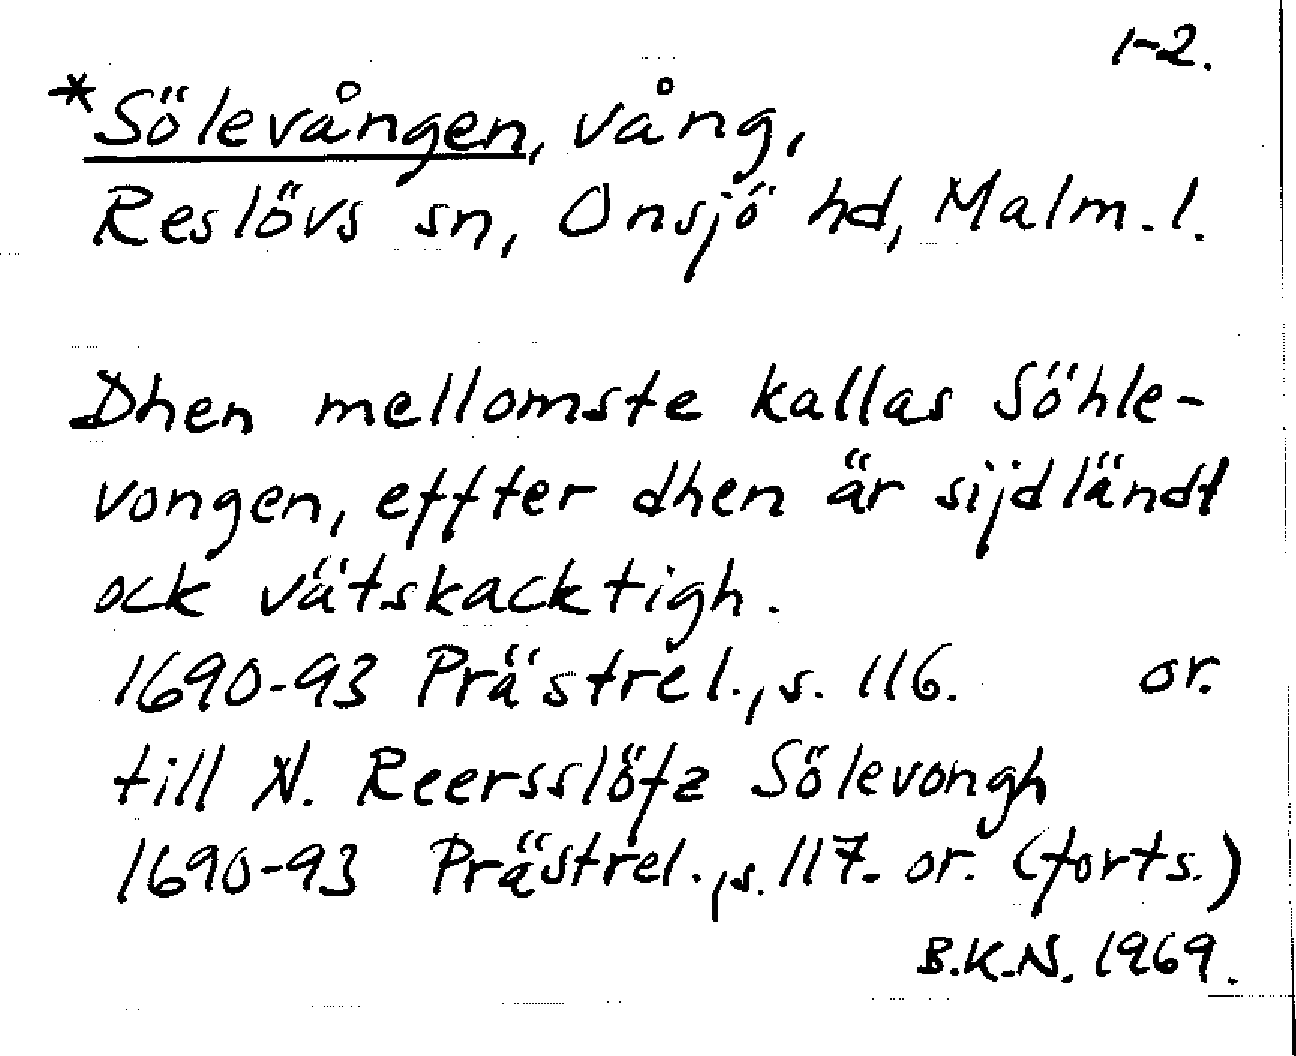 1-2.
*Sölevången, vång,
Reslövs sn, Onsjö hd, Malm. l.
Dhen mellomste kallas Söhle-
vongen, effter dhen är sijdländt
ock vätskacktigh.
1690-93 Prästrel., s. 116. or.
till N. Reersslöfz Sölevongh
1690-93 Prästrel., s. 117. or. (forts.)
B.K.N. 1969.